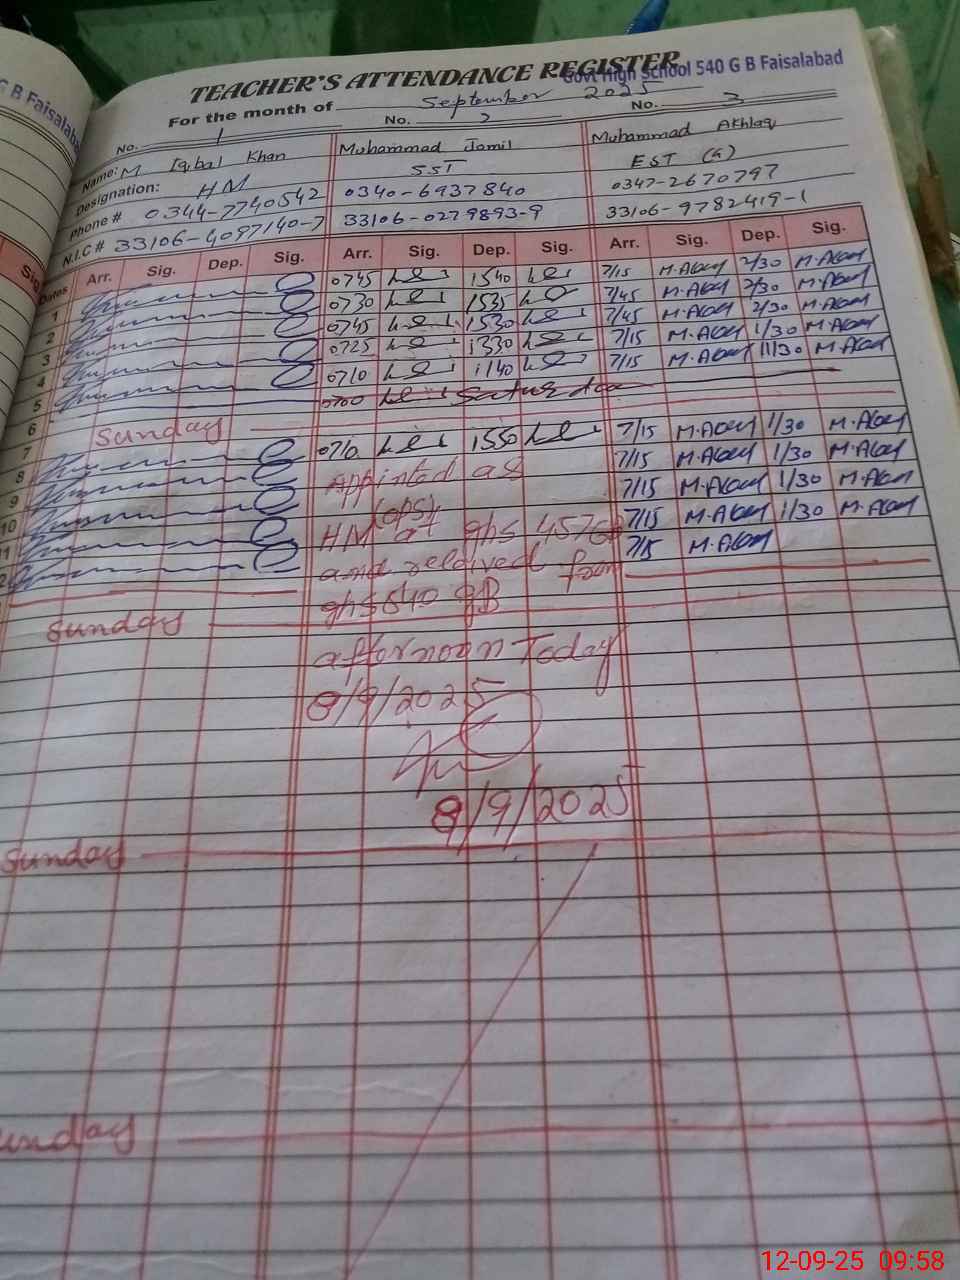 G B Faisalabad
TEACHER'S ATTENDANCE REGISTER
Govt High School 540 G B Faisalabad
For the month of September 2025
No. 1 No. 2 No. 3
Name: M Iqbal Khan Muhammad Jamil Muhammad Akhlaq
Designation: HM SST EST (G)
Phone # 0344-7740542 0340-6937840 0347-2670797
N.I.C # 33106-4097140-7 33106-0279893-9 33106-9782419-1
Sig.
Dates Arr. Sig. Dep. Sig. Arr. Sig. Dep. Sig. Arr. Sig. Dep. Sig.
1 0745 1540 7/15 M.Akhlaq 2/30 M.Akhlaq
2 0730 1535 7/45 M.Akhlaq 2/30 M.Akhlaq
3 0745 1530 7/45 M.Akhlaq 2/30 M.Akhlaq
4 0725 1330 7/15 M.Akhlaq 1/30 M.Akhlaq
5 0710 1140 7/15 M.Akhlaq 11/30 M.Akhlaq
6 0700 Saturday
7 Sunday
8 0710 1550 7/15 M.Akhlaq 1/30 M.Akhlaq
9 Appinted as 7/15 M.Akhlaq 1/30 M.Akhlaq
10 (OPS) 7/15 M.Akhlaq 1/30 M.Akhlaq
11 HM at ghs 457GB 7/15 M.Akhlaq 1/30 M.Akhlaq
and relived from 7/15 M.Akhlaq
ghs 540 GB
Sunday
afternoon Today
8/9/2025
8/9/2025
Sunday
unday
12-09-25 09:58